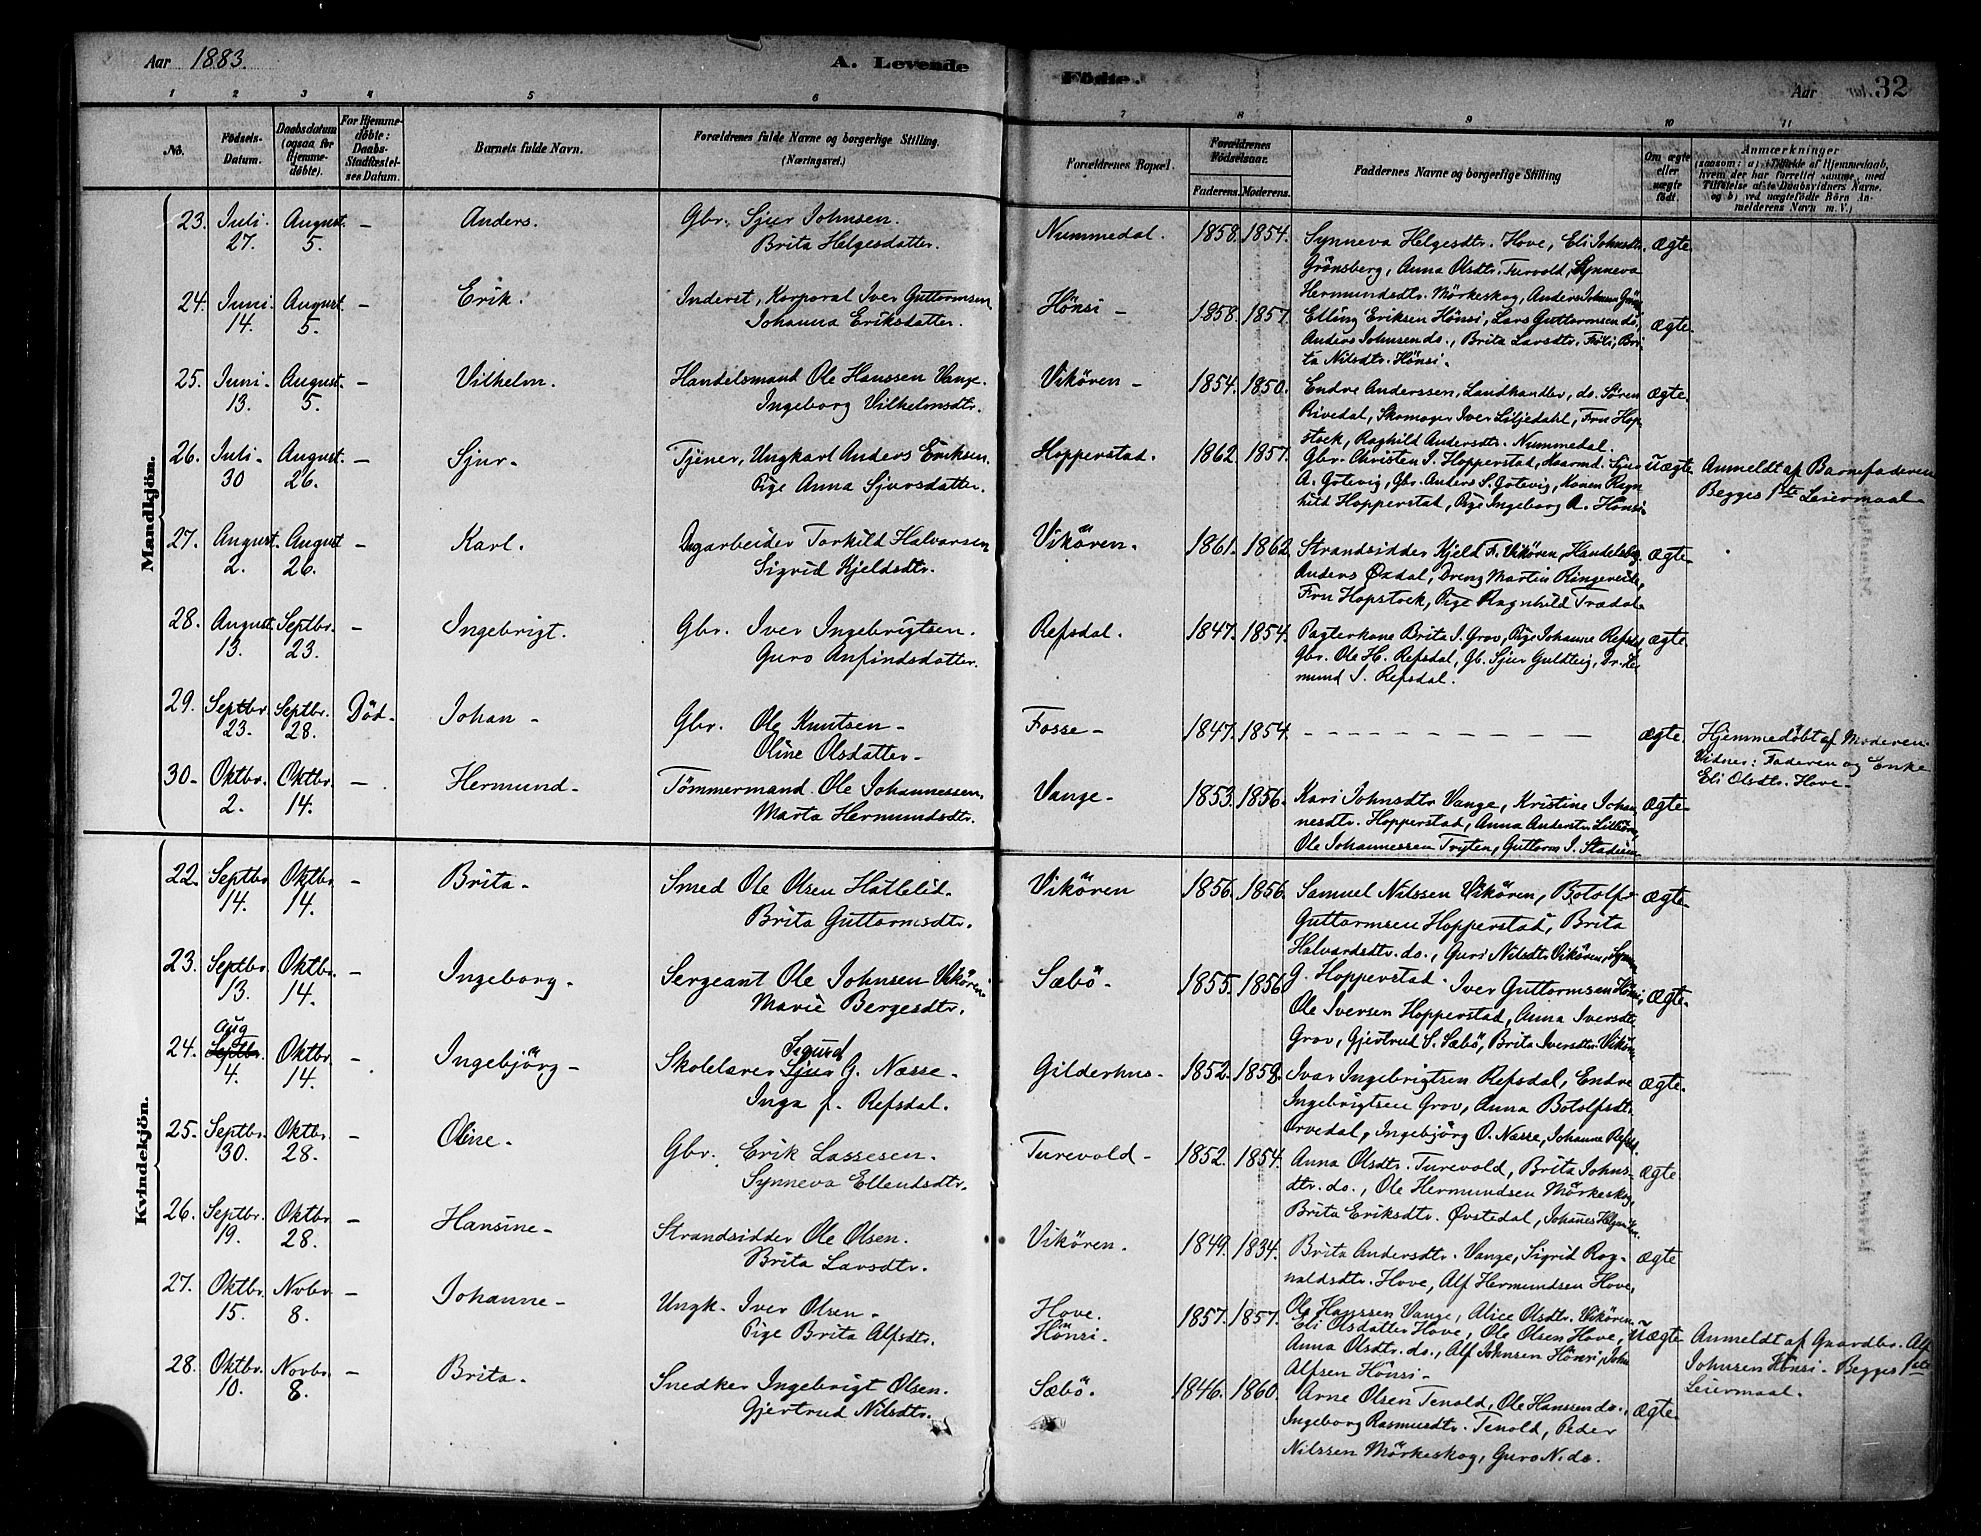 Aar 1883.
A. Levende
Födte.
Aar
32
1 2 3 4 5 6 7 8 9 10 11
No.
Födsels-Datum.
Daabsdatum (ogsaa for Hjemme-döbte).
For Hjemme-döbte: Daabs-Stadfæstel-ses Datum.
Barnets fulde Navn.
Forældrenes fulde Navne og borgerlige Stilling.
(Næringsvei.)
Forældrenes Bopæl.
Forældrenes Födselsaar.
Faderens. Moderens.
Faddernes Navne og borgerlige Stilling
Om ægte eller uægte födt.
Anmærkninger
(saasom: a) i Tilfælde af Hjemmedaab,
hvem der har forrettet samme, med
Tilföielse af to Daabsvidners Navne.
og b) ved uægtefödte Börn An-
melderens Navn m. V.)
Mandkjön.
23. Juli 27. August 5. – Anders. Gbr. Sjur Johnsen. Nummedal. 1858. 1854. Synneva Helgesdtr. Hove, Eli Johnsdtr. ægte
Brita Helgesdatter. Grönsberg, Anna Olsdtr. Turvold, Synneva
Hermundsdtr. Mörkeskog, Anders Johnsen
24. Juni 14. August 5. – Erik. Inderst, Korporal Iver Guttormsen Hönsi – 1858. 1857. Elling Eriksen Hönsi, Lars Guttormsen do, ægte.
Johanna Eriksdatter. Anders Johnsen do., Brita Larsdtr. Föli, Bri-
ta Nilsdtr. Hönsi.
25. Juni 13. August 5. – Vilhelm. Handelsmand Ole Hanssen Vange. Vikören – 1854. 1850. Endre Anderssen, Landhandler, do. Sören ægte.
Ingeborg Vilhelmsdtr. Rivedal, Skomager Iver Liljedahl, Fru Hop-
stock, Raghild Andersdtr. Nummedal.
26. Juli 30 August 26. – Sjur – Tjener, Ungkarl Anders Eriksen. Hopperstad. 1862. 1857. Gbr. Christen I. Hopperstad, Kaarmd. Sjur Uægte Anmeldt af Barnefaderen
Pige Anna Sjursdatter. A. Gotevig, Gbr. Anders S. Gotevig, Konen Ragn- Begges 1ste Leiermaal
hild Hopperstad, Pige Ingeborg A. Hönsi
27. August 2. August 26. – Karl. Dagarbeider Torkild Halvorsen Vikören. 1861. 1862. Strandsidder Kjeld F. Vikören, Handelsbg. ægte
Sigrid Kjeldsdtr. Anders Øxdal, Dreng Martin Ringereide,
Fru Hopstock, Pige Ragnhild Trædal
28. August 13. Septbr. 23. – Ingebrigt. Gbr. Iver Ingebrigtsen. Refsdal. 1847. 1854. Pagterkone Brita I. Grov, Pige Johanne Refsdal ægte.
Guro Anfindsdatter. Gbr. Ole H. Refsdal, Gb. Sjur Guldteig, Dr. Se-
mund I. Refsdal.
29. Septbr. 23. Septbr. 28. Död – Johan – Gbr. Ole Knutsen – Fosse – 1847. 1854. – – – – – – – – – ægte. Hjemmedöbt af Moderen.
Oline Olsdatter – Vidner: Faderen og Enke
Eli Olsdtr. Hove –
30 – Oktbr. 2. Oktbr. 14. – Hermund – Tömmermand Ole Johannessen Vange – 1853. 1856. Kari Johnsdtr. Vange, Kristine Johan- ægte –
Marta Hermundsdtr. nesdtr. Hopperstad, Anna Anderstr.
Ole Johannessen Tryten, Guttorm I. Stadeim
Kvindekjön.
22. Septbr. 14. Oktbr. 14. – Brita – Smed Ole Olsen Hatlelid. Vikören 1856. 1856. Samuel Nilssen Vikören, Botolf ægte
Brita Guttormsdtr. Guttormsen Hopperstad, Brita
Halvardsdtr. do., Guri Nilsdtr. Vikören,
23. Septbr. 13. Oktbr. 14. – Ingeborg – Sergeant Ole Johnsen Vikören Sæbö – 1855. 1856 G. Hopperstad. Iver Guttormsen Hönsi, ægte –
Marie Bergesdtr. Ole Iversen Hopperstad, Anna Iversdtr.
Grov, Gjertrud S. Sæbö, Brita Iversdtr. Vikören
24. Aug Septbr. 4. Oktbr. 14. – Ingebjörg – Skolelærer Sjur Sigurd G. Næsse – Gilderhus – 1852. 1858. Ivar Ingebrigtsen Refsdal, Endre ægte.
Inga f. Refsdal. Ingebrigtsen Grov, Anna Botolfsdtr.
Orvedal, Ingebjörg O. Næsse, Johanne Refsd.
25. Septbr. 30. Oktbr. 28. – Oline – Gbr. Erik Lassesen. Turevold – 1852. 1854. Anna Olsdtr. Turevold, Brita Johns- ægte
Synneva Ellendsdtr. dtr. do., Ole Hermundsen Mörkeskog,
Brita Eriksdtr. Øvstedal, Johanes
26. Septbr. 19. Oktbr. 28. – Hansine – Strandsidder Ole Olsen. Vikören. 1849. 1834. Brita Andersdtr. Vange, Sigrid Rog- ægte
Brita Larsdtr. naldsdtr. Hove, Alf Hermundsen Hove,
Ole Hanssen Vange, Alice Olsdtr. Vikören.
27. Oktbr. 15. Novbr. 8. – Johanne – Ungk. Iver Olsen – Hove. 1857. 1857. Eli Olsdatter Hove, Ole Olsen Hove, Uægte Anmeldt af Gaardbr. Alf
Pige Brita Alfsdtr. Hönsi. Anna Olsdtr. do., Alf Johnsen Hönsi, John Johnsen Hönsi – Begges 1ste
Alfsen Hönsi – Leiermaal.
28. Oktbr. 10. Novbr. 8. – Brita. Snedker Ingebrigt Olsen. Sæbö. 1846. 1860. Arne Olsen Tenold, Ole Hanssen do., ægte –
Gjertrud Nilsdtr. Ingeborg Rasmusdtr. Tenold, Peder
Nilssen Mörkeskog, Guro N. do.